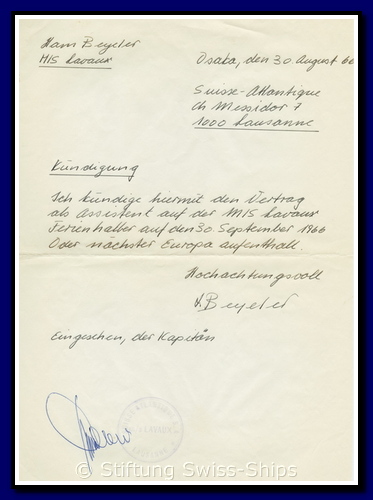 Hans Beyeler
M/S Lavaux
Osaka, den 30 August 66
Suisse-Atlantique
ch Messidor 7
1000 Lausanne
Kündigung
Ich kündige hiermit den Vertrag
als Assistent auf der M/S Lavaux
Ferienhalber auf den 30 September 1966
Oder nächster Europa aufenthalt.
Hochachtungsvoll
H. Beyeler
Eingesehen, der Kapitän
LAVAUX
© Stiftung Swiss-Ships